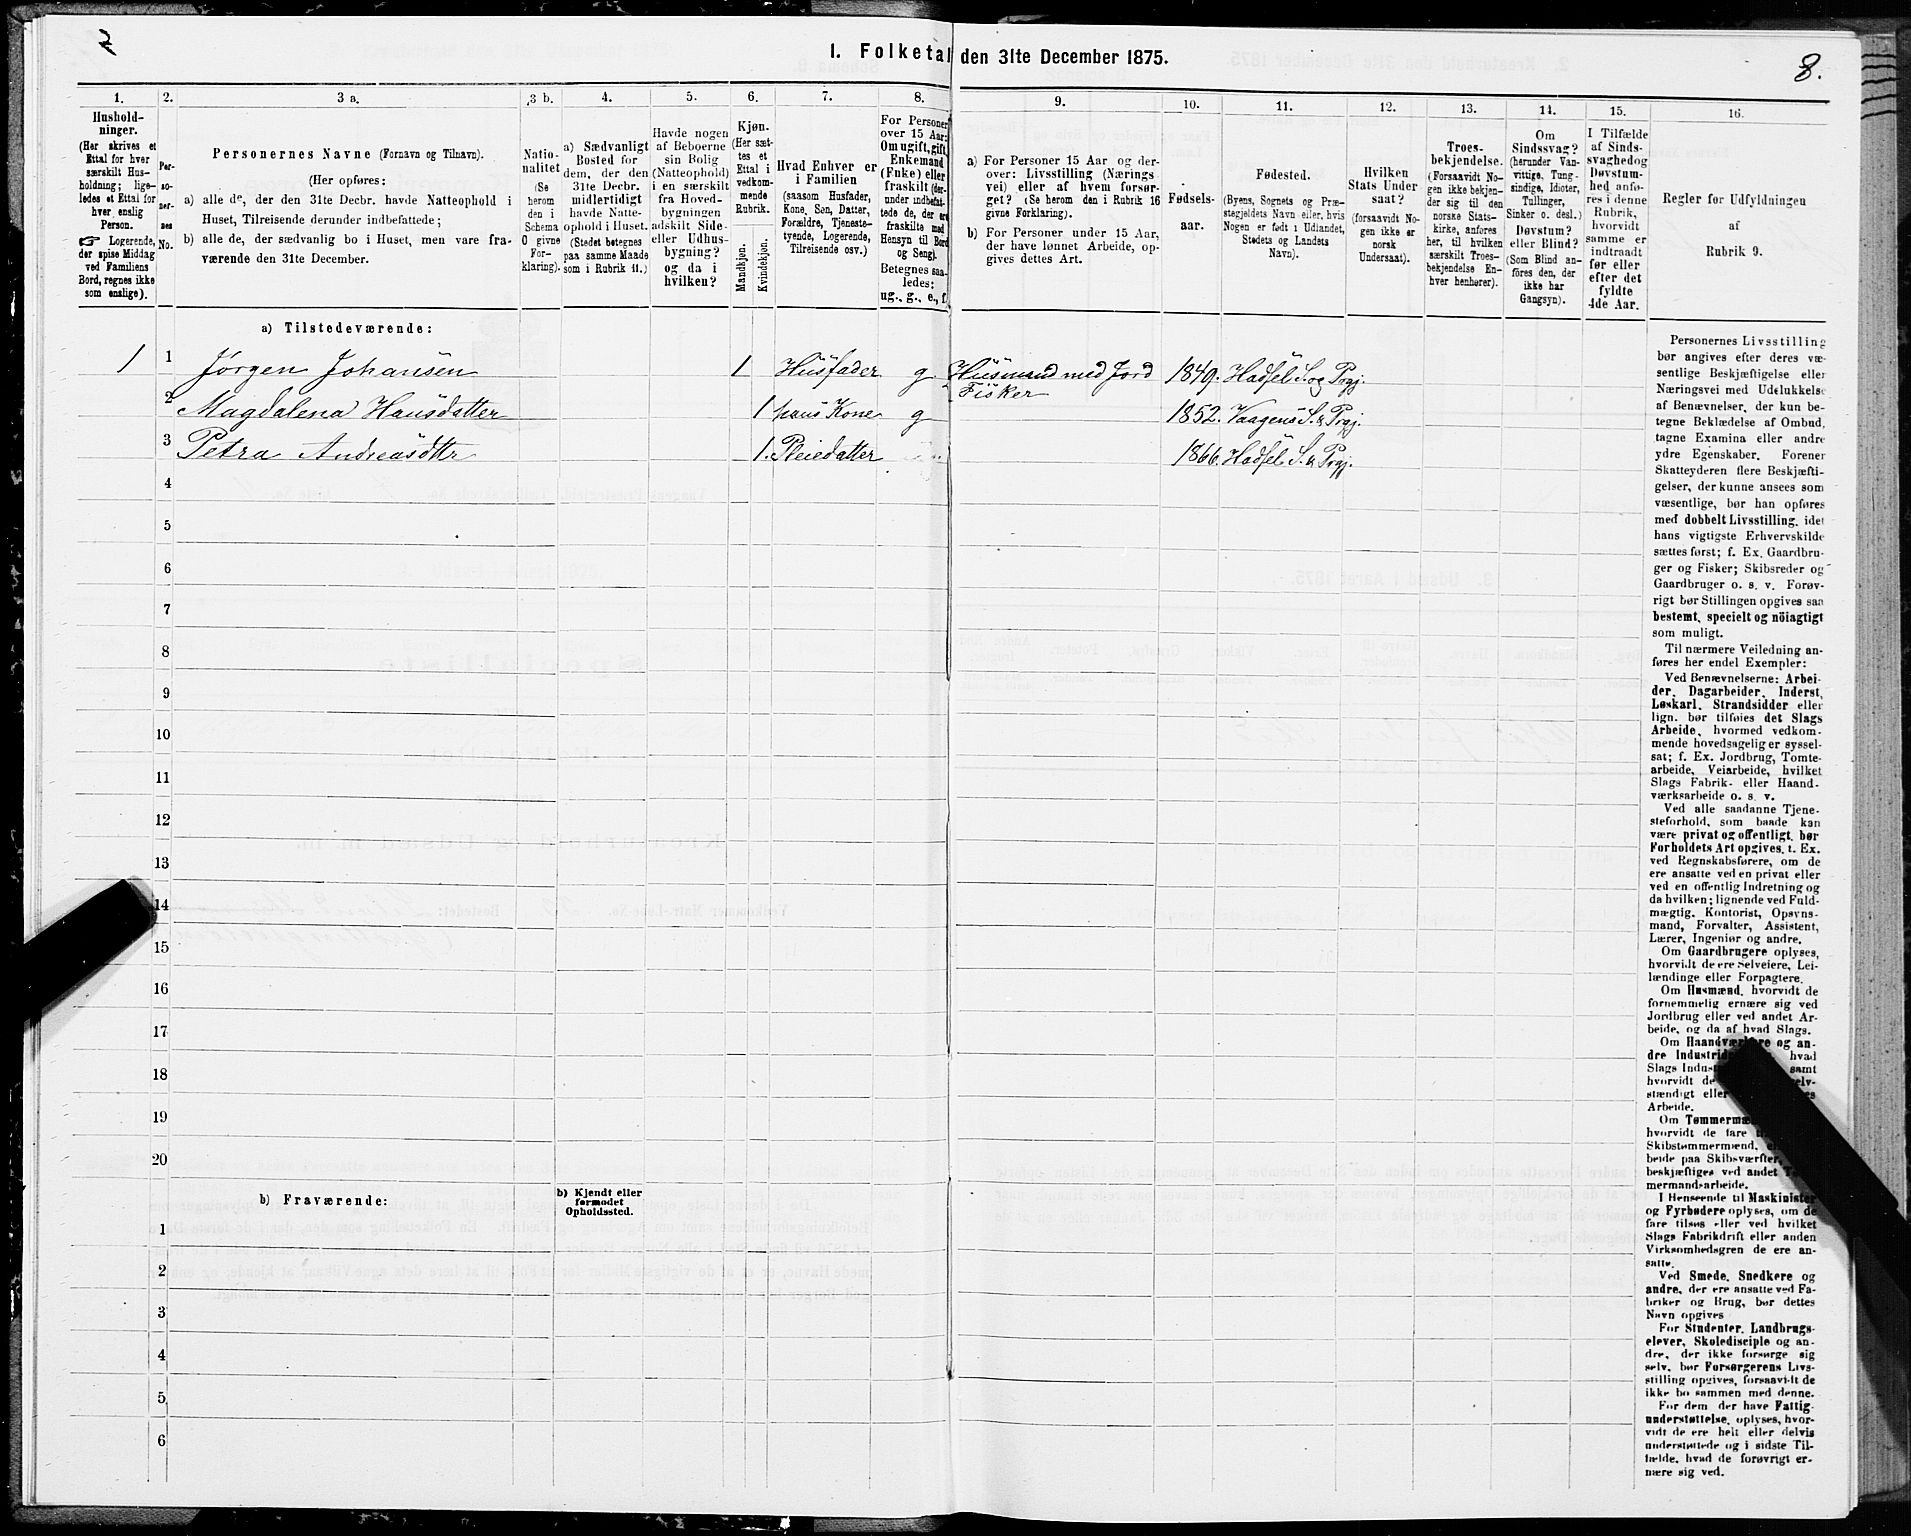 2
8.
1. Folketal den 31te December 1875.
1.
2.
3 a.
3 b.
4.
5.
6.
7.
8.
9.
10.
11.
12.
13.
14.
15.
16.
Hushold-
ninger.
(Her skrives et
Ettal for hver
særskilt Hus-
holdning; lige-
ledes et Ettal for
hver enslig
Person.
☞ Logerende,
der spise Middag
ved Familiens
Bord, regnes ikke
som enslige).
Per-
so-
ner-
nes
No.
Personernes Navne (Fornavn og Tilnavn).
(Her opføres:
a) alle de, der den 31te Decbr. havde Natteophold i
Huset, Tilreisende derunder indbefattede;
b) alle de, der sædvanlig bo i Huset, men vare fra-
værende den 31te December.
Natio-
nalitet
(Se
herom
den i
Schema
O givne
For-
klaring).
a) Sædvanligt
Bosted for
dem, der den
31te Decbr.
midlertidigt
havde Natte-
ophold i Huset.
(Stedet betegnes
paa samme Maade
som i Rubrik 11.)
Havde nogen
af Beboerne
sin Bolig
(Natteophold)
i en særskilt
fra Hoved-
bygningen
adskilt Side-
eller Udhus-
bygning?
og da i
hvilken?
Kjøn.
(Her sæt-
tes et
Ettal i
vedkom-
mende
Rubrik.
Mandkjøn.
Kvindekjøn.
Hvad Enhver er
i Familien
(saasom Husfader,
Kone, Søn, Datter,
Forældre, Tjeneste-
tyende, Logerende,
Tilreisende osv.)
For Personer
over 15 Aar:
Om ugift, gift,
Enkemand
(Enke) eller
fraskilt (der-
under indbefat-
tede de, der ere
fraskilte med
Hensyn til Bord
og Seng).
Betegnes saa-
ledes:
ug., g., e., f.
a) For Personer 15 Aar og der-
over: Livsstilling (Nærings-
vei) eller af hvem forsør-
get? (Se herom den i Rubrik 16
givne Forklaring).
b) For Personer under 15 Aar,
der have lønnet Arbeide, op-
gives dettes Art.
Fødsels-
aar.
Fødested.
(Byens, Sognets og Præ-
stegjeldets Navn eller, hvis
Nogen er født i Udlandet,
Stedets og Landets
Navn).
Hvilken
Stats Under-
saat?
(forsaavidt No-
gen ikke er
norsk
Undersaat).
Troes-
bekjendelse.
(Forsaavidt No-
gen ikke bekjen-
der sig til den
norske Stats-
kirke, anføres
her, til hvilken
særskilt Troes-
bekjendelse En-
hver henhører).
Om
Sindssvag?
(herunder Van-
vittige, Tung-
sindige, Idioter,
Tullinger,
Sinker o. desl.)
Døvstum?
eller Blind?
(Som Blind an-
føres den, der
ikke har
Gangsyn).
I Tilfælde
af Sinds-
svaghedog
Døvstum-
hed anfø-
res i denne
Rubrik,
hvorvidt
samme er
indtraadt
før eller
efter det
fyldte
4de Aar.
Regler for Udfyldningen
af
Rubrik 9.
a) Tilstedeværende:
1 1 Jørgen Johansen 1 Husfader g Husmand med Jord 1849. Hadsel S. og Prgj.
Fisker
2 Magdalena Hansdatter 1 hans Kone g 1852. Vaagens S. & Prgj.
3 Petra Andreasdttr 1. Pleiedatter 1866. Hadsel S. & Prgj.
4
5
6
7
8
9
10
11
12
13
14
15
16
17
18
19
20
b) Fraværende:
b) Kjendt eller
formodet
Opholdssted.
1
2
3
4
5
6
Personernes Livsstilling
bør angives efter deres væ-
sentlige Beskjæftigelse eller
Næringsvei med Udelukkelse
af Benævnelser, der kun be-
tegne Beklædelse af Ombud,
tagne Examina eller andre
ydre Egenskaber. Forener
Skatteyderen flere Beskjæfti-
gelser, der kunne ansees som
væsentlige, bør han opføres
med dobbelt Livsstilling, idet
hans vigtigste Erhvervskilde
sættes først; f. Ex. Gaardbru-
ger og Fisker; Skibsreder og
Gaardbruger o. s. v. Forøv-
rigt bør Stillingen opgives saa
bestemt, specielt og nöiagtigt
som muligt.
Til nærmere Veiledning an-
føres her endel Exempler:
Ved Benævnelserne: Arbei-
der, Dagarbeider, Inderst,
Løskarl, Strandsidder eller
lign. bør tilføies det Slags
Arbeide, hvormed vedkom-
mende hovedsagelig er syssel-
sat; f. Ex. Jordbrug, Tomte-
arbeide, Veiarbeide, hvilket
Slags Fabrik- eller Haand-
værksarbeide o. s. v.
Ved alle saadanne Tjene-
steforhold, som baade kan
være privat og offentligt, bør
Forholdets Art opgives, f. Ex.
ved Regnskabsførere, om de
ere ansatte ved en privat eller
ved en offentlig Indretning og
da hvilken; lignende ved Fuld-
mægtig, Kontorist, Opsyns-
mand, Forvalter, Assistent,
Lærer, Ingeniør og andre.
Om Gaardbrugere oplyses,
hvorvidt de ere Selveiere, Lei-
lændinge eller Forpagtere.
Om Husmænd, hvorvidt de
fornemmelig ernære sig ved
Jordbrug eller ved andet Ar-
beide, og da af hvad Slags.
Om Haandværkere og an-
dre Industrid hvad
Slags Indust samt
hvorvidt de selv-
stændigt eller
Arbeide.
Om Tømmermæ
hvorvidt de fare
Skibstømmermænd, e
beide paa Skibsværfter,
beskjæftiges ved andet T
mermandsarbeide.
I Henseende til Maskinister
og Fyrbødere oplyses, om de
fare tilsøs eller ved hvilket
Slags Fabrikdrift eller anden
Virksomhedsgren de ere an-
satte.
Ved Smede, Snedkere og
andre, der ere ansatte ved Fa-
briker og Brug, bør dettes
Navn opgives
For Studenter, Landbrugs-
elever, Skoledisciple og an-
dre, der ikke forsørge sig
selv, bør Forsørgerens Livs-
stilling opgives, forsaavidt de
ikke bo sammen med denne.
For dem der have Fattig-
understøttelse, oplyses, hvor-
vidt de ere helt eller delvis
understøttede og i sidste Til-
fælde, hvad de forøvrigt er-
nære sig ved.